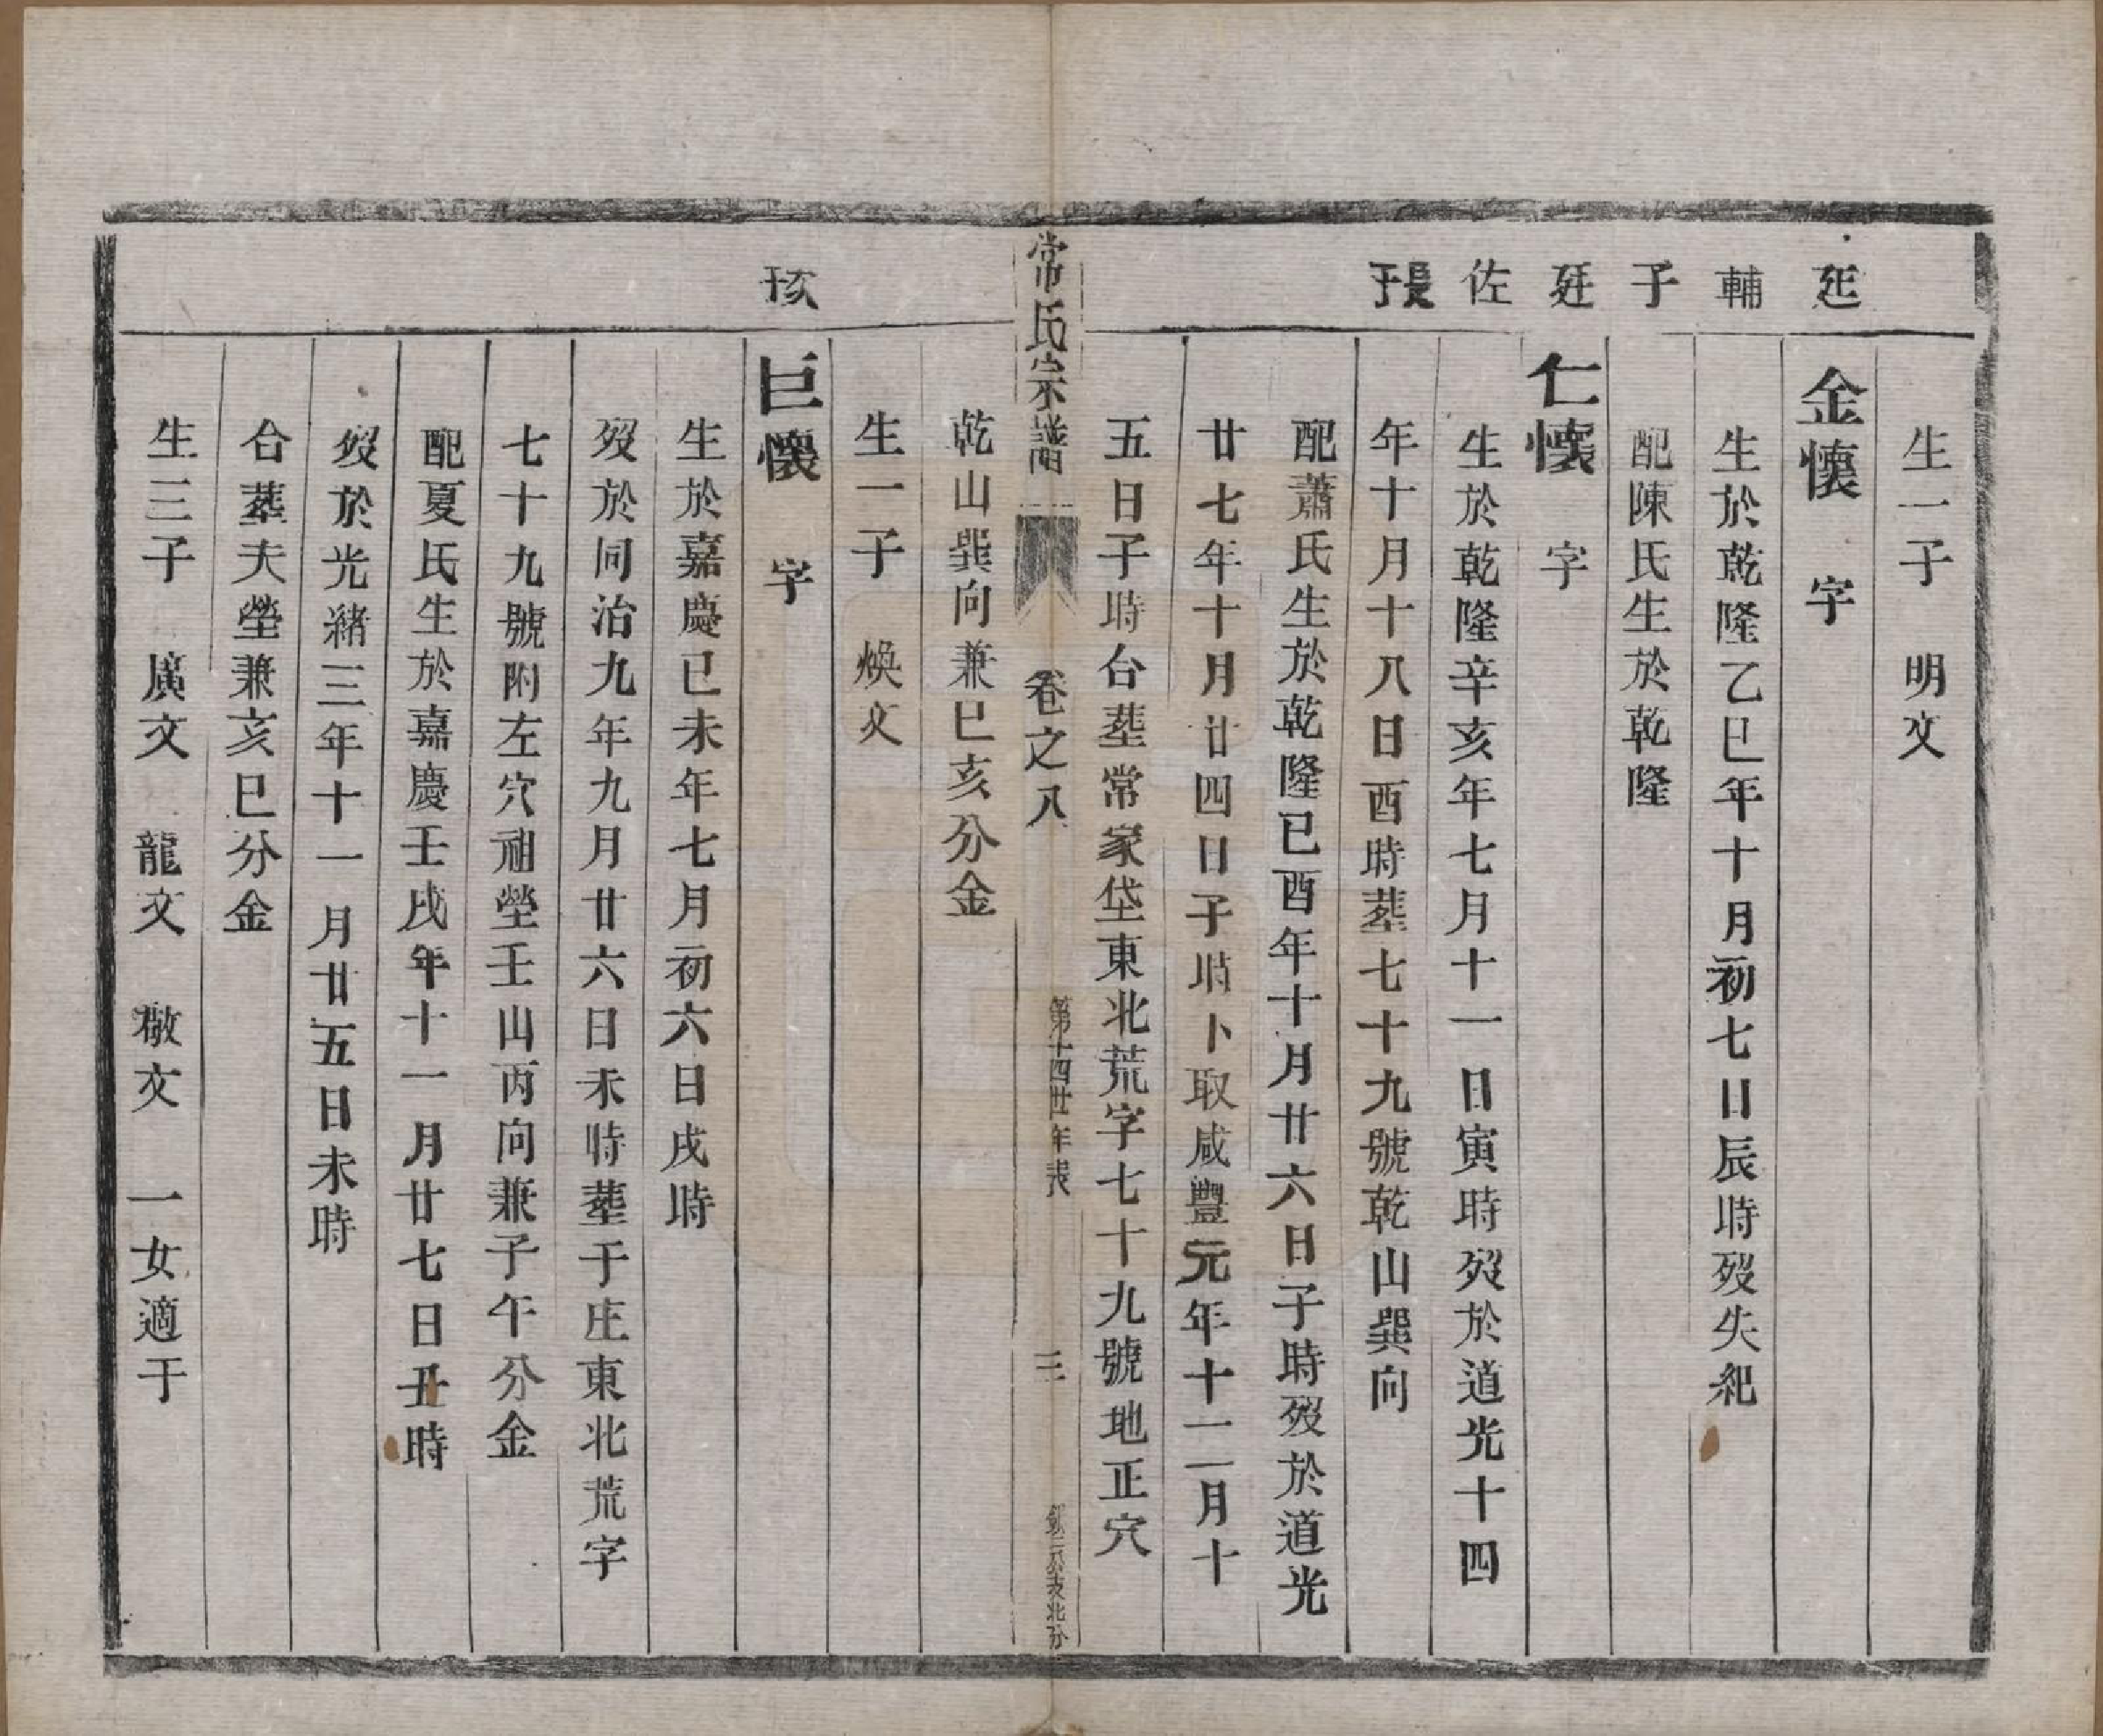 生一子　明文
廷
金懷　字
輔
生於乾隆乙巳年十月初七日辰時歿失紀
子
配陳氏生於乾隆
廷
仁懷　字
佐
生於乾隆辛亥年七月十一日寅時歿於道光十四
長子
年十月十八日酉時葬七十九號乾山巽向
配蕭氏生於乾隆已酉年十月廿六日子時歿於道光
廿七年十月廿四日子時卜取咸豐元年十二月十
五日子時合葬常家垈東北荒字七十九號地正穴
常氏宗譜　卷之八　第十四世年表　三
乾山巽向兼巳亥分金
生一子　煥文
次子
巨懷　字
生於嘉慶已未年七月初六日戌時
歿於同治九年九月廿六日未時葬于庄東北荒字
七十九號附左穴祖塋壬山丙向兼子午分金
配夏氏生於嘉慶壬戌年十一月廿七日丑時
歿於光緒三年十一月廿五日未時
合葬夫塋兼亥巳分金
生三子　廣文　龍文　敬文　一女適于